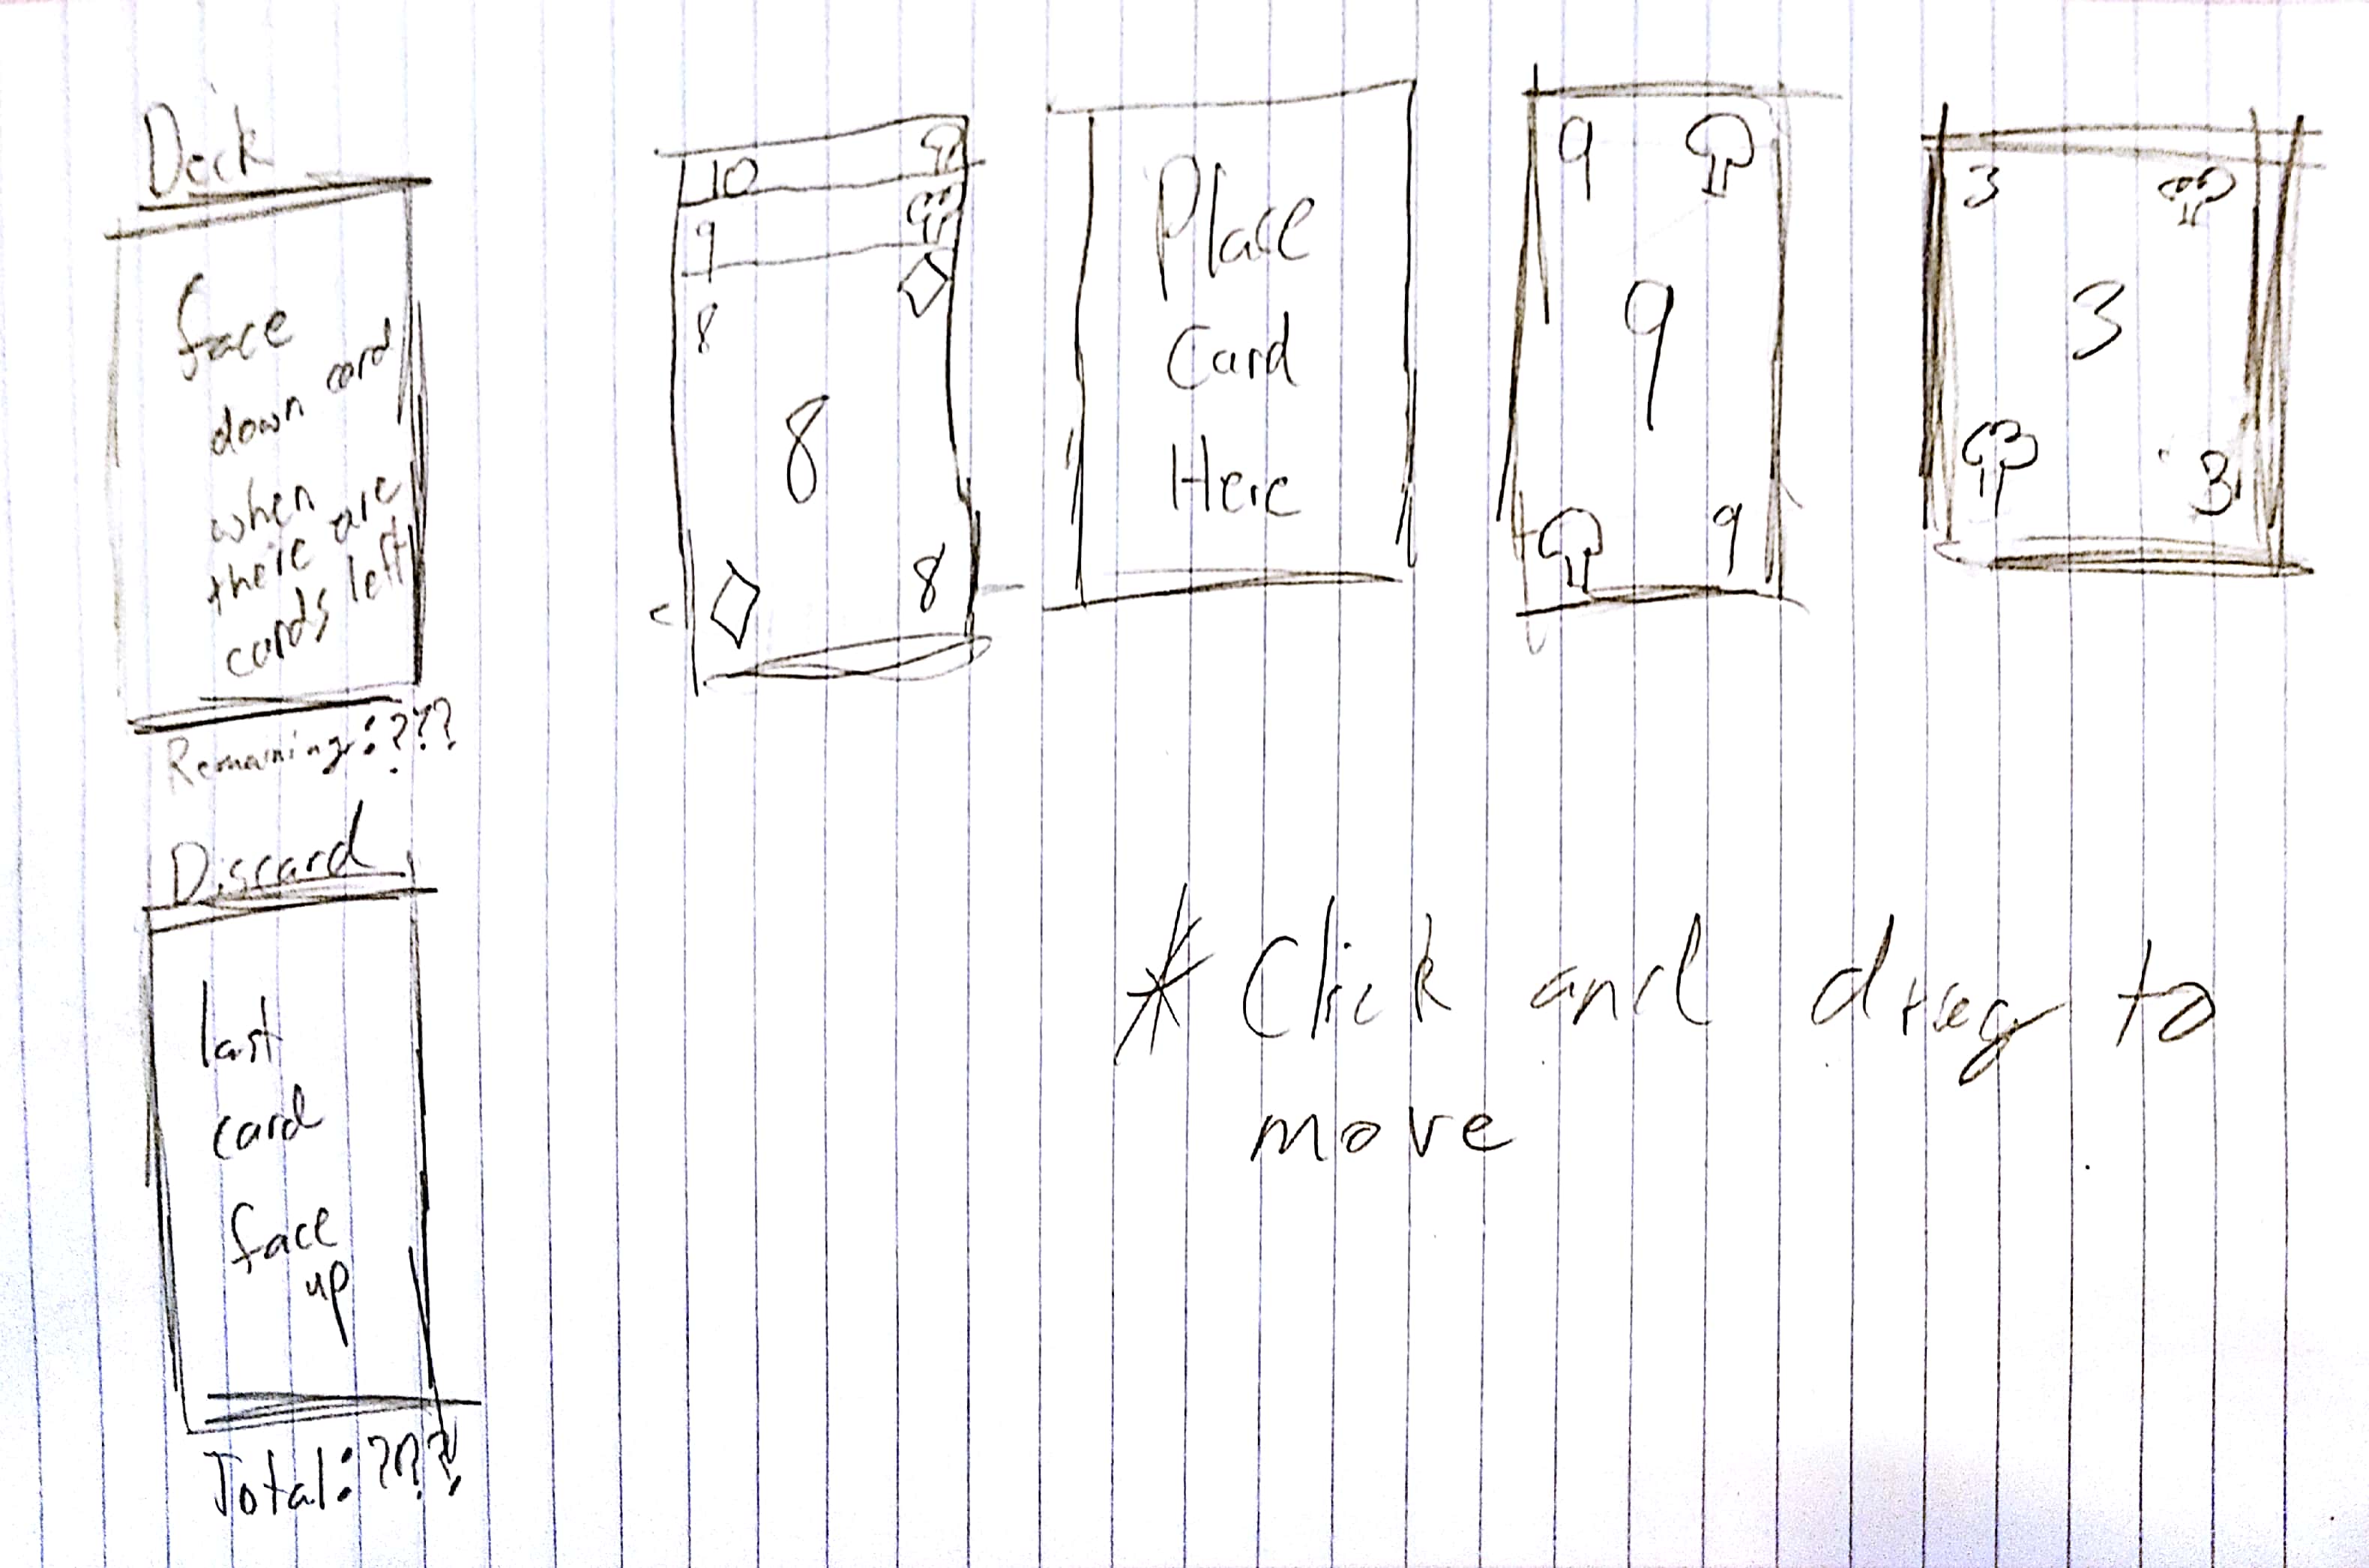 Deck
face
down card
when
there are
cards left
Remaining:???
Discard
last
card
face
up
Total:???
10
9
8
8
8
Place
Card
Here
9
9
9
3
3
3
* Click and drag to
move